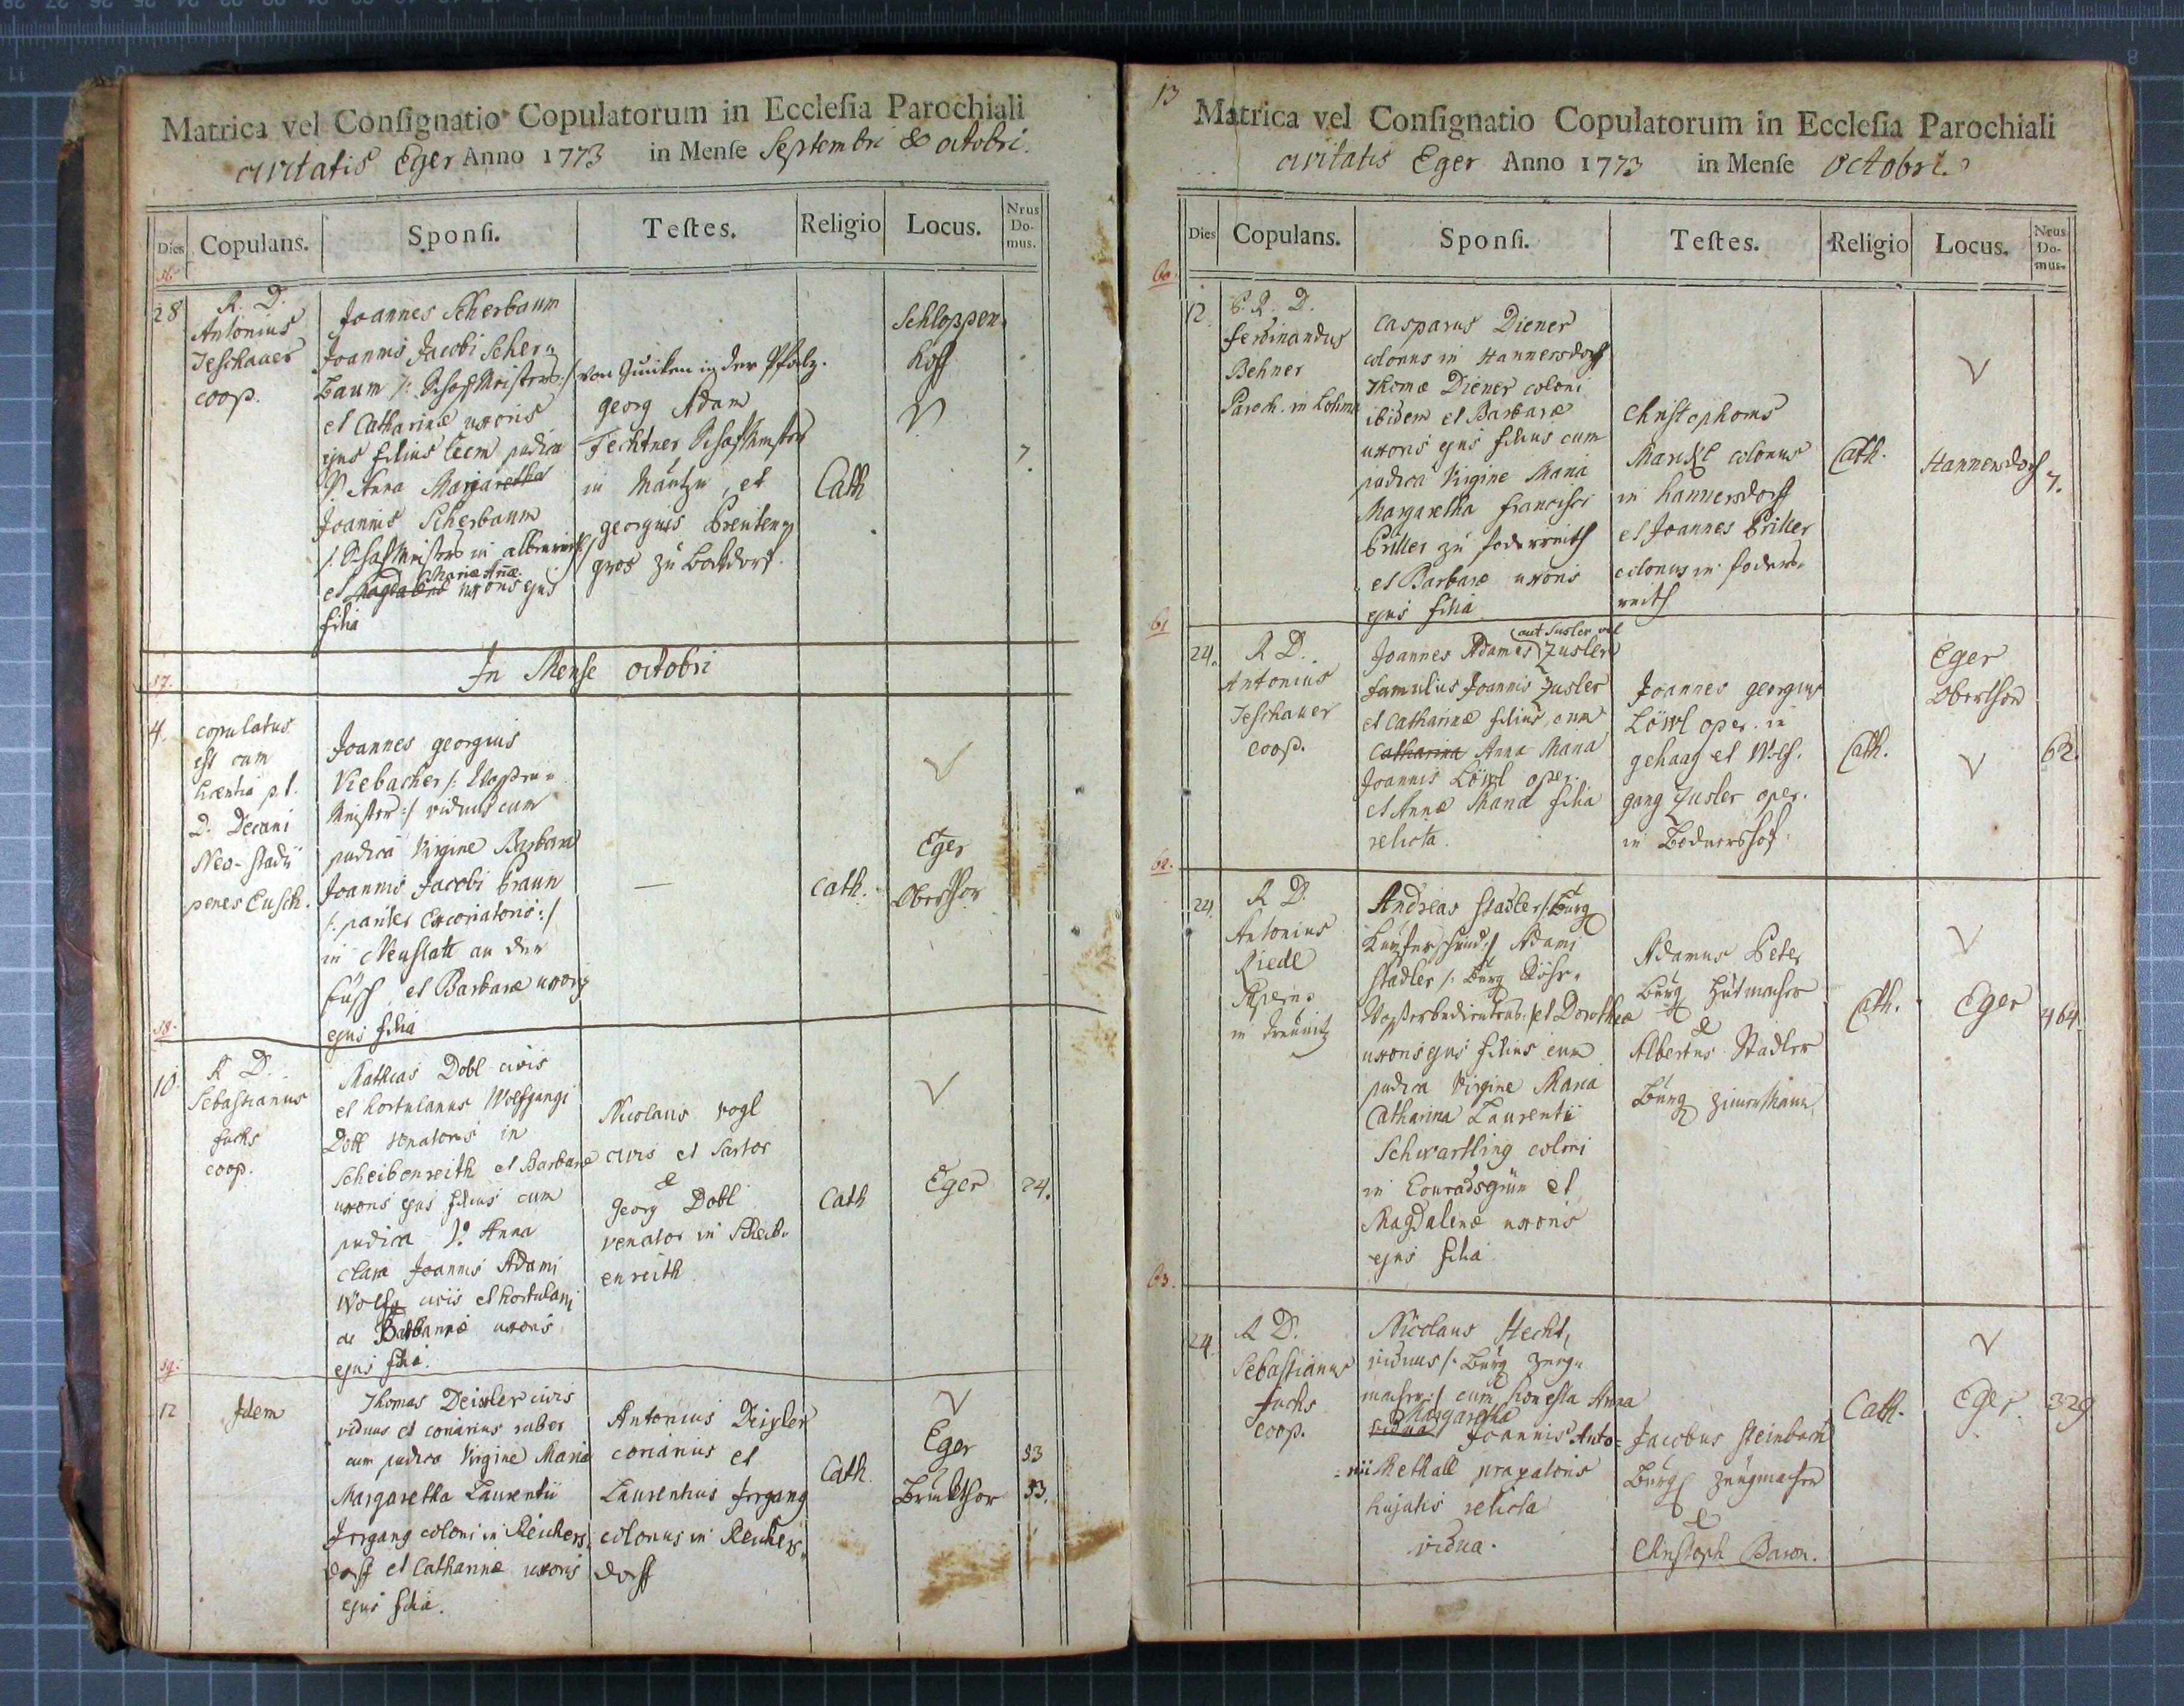 Matrica vel Consignatio Copulatorum in Ecclesia Parochiali
civitatis Eger Anno 1773 in Mense Septembri & octobri.
Dies
Copulans.
Sponsi.
Testes.
Religio
Locus.
Nrus Do-mus.
28
R. D.
Antonius
Jeschauer
coop.
Joannes Scherbaum
Joannis Jacobi Scher=
baum
et Catharinæ uxoris
ejus filius cum pudica
V. Anna Margaretha
Joannis Scherbaum
Mariæ Annæ
et Magdalenæ uxoris ejus
filia
in der Pfalz.
georg Adam
Fechtner
in
georgius
gros zu
Cath
Schloppen=
hoff
7.
In Mense octobri
57.
4.
copulatus
est cum
licentia p. t.
D. Decani
Neo-stadii
penes Cusch.
Joannes georgius
Viebacher
Meister :/ viduus cum
pudica Virgine Barbara
Joannis Jacobi Braun
/: pariter Excoriatoris :/
in Neustatt an der
et Barbaræ uxoris
ejus filia
—
Cath.
Eger
Oberthor
58.
10.
R. D.
Sebastianus
fuchs
coop.
Mathias Dobl civis
et hortulanus Wolfgangi
Dobl venatoris in
Scheibenreith et Barbaræ
uxoris ejus filius cum
pudica V. Anna
Clara Joannis Adami
Wolf civis et hortulani
ac uxoris
ejus filia.
Nicolaus Vogl
civis et Sartor
&
Georg Dobl
venator in Scheib=
enreith
Cath
Eger
24.
59.
12
Idem
Thomas Deisler civis
viduus et coriarius ruber
cum pudica Virgine Maria
Margaretha Laurentii
Irrgang coloni in Reichers=
dorff et Catharinæ uxoris
ejus filia.
Antonius Deisler
coriarius et
Laurentius Irrgang
colonus in Reichers=
dorff
Cath.
Eger
Bruckthor
53
53.
13
Matrica vel Consignatio Copulatorum in Ecclesia Parochiali
civitatis Eger Anno 1773 in Mense Octobri.
Dies
Copulans.
Sponsi.
Testes.
Religio
Locus.
Nrus Do-mus.
60.
12.
R. D.
Ferdinandus
Behner
Paroch. in Lohma
Casparus Diener
colonus in Hannersdorff
Thomæ Diener coloni
ibidem et Barbaræ
uxoris ejus filius cum
pudica Virgine Maria
Margaretha Francisci
Briller zu foderreith
et Barbaræ uxoris
ejus filia
Christophorus
Markl colonus
in hannersdorff
et Joannes Briller
colonus in foder=
reith
Cath.
Hannersdorf
7.
61
24.
R. D.
Antonius
Jeschauer
coop.
(aut Susler vel
Joannes Adamus Zusler
famulus Joannis Zusler
et Catharinæ filius, cum
Catharina Anna Maria
Joannis Löwl oper.
et Annæ Mariæ filia
relicta.
Joannes georgius
Löwl oper. in
gehaag et Wolf=
gang Zusler oper.
in
Cath.
Eger
Oberthor
62.
62.
24.
R. D.
Antonius
Riedl
in
Andreas Stadler /: Burg
Adami
Stadler /: Burg
et Dorotheæ
uxoris ejus filius cum
pudica Virgine Maria
Catharina Laurentii
Schwartling coloni
in Conradsgrün et
Magdalenæ uxoris
ejus filia.
Adamus Peter
Burg Hutmacher
&
Albertus Stadler
Burg Zimermann
Cath.
Eger
464
63.
24.
R. D.
Sebastianus
Fuchs
coop.
Nicolaus Hecht,
viduus /: Burg Zeug=
macher :/ cum honesta Anna
Margaretha
vidua Joannis Anto=
=nii Methall
hujatis relicta
vidua.
Jacobus Steinbach
Burg Zeugmacher
&
Christoph Baron.
Cath.
Eger.
329